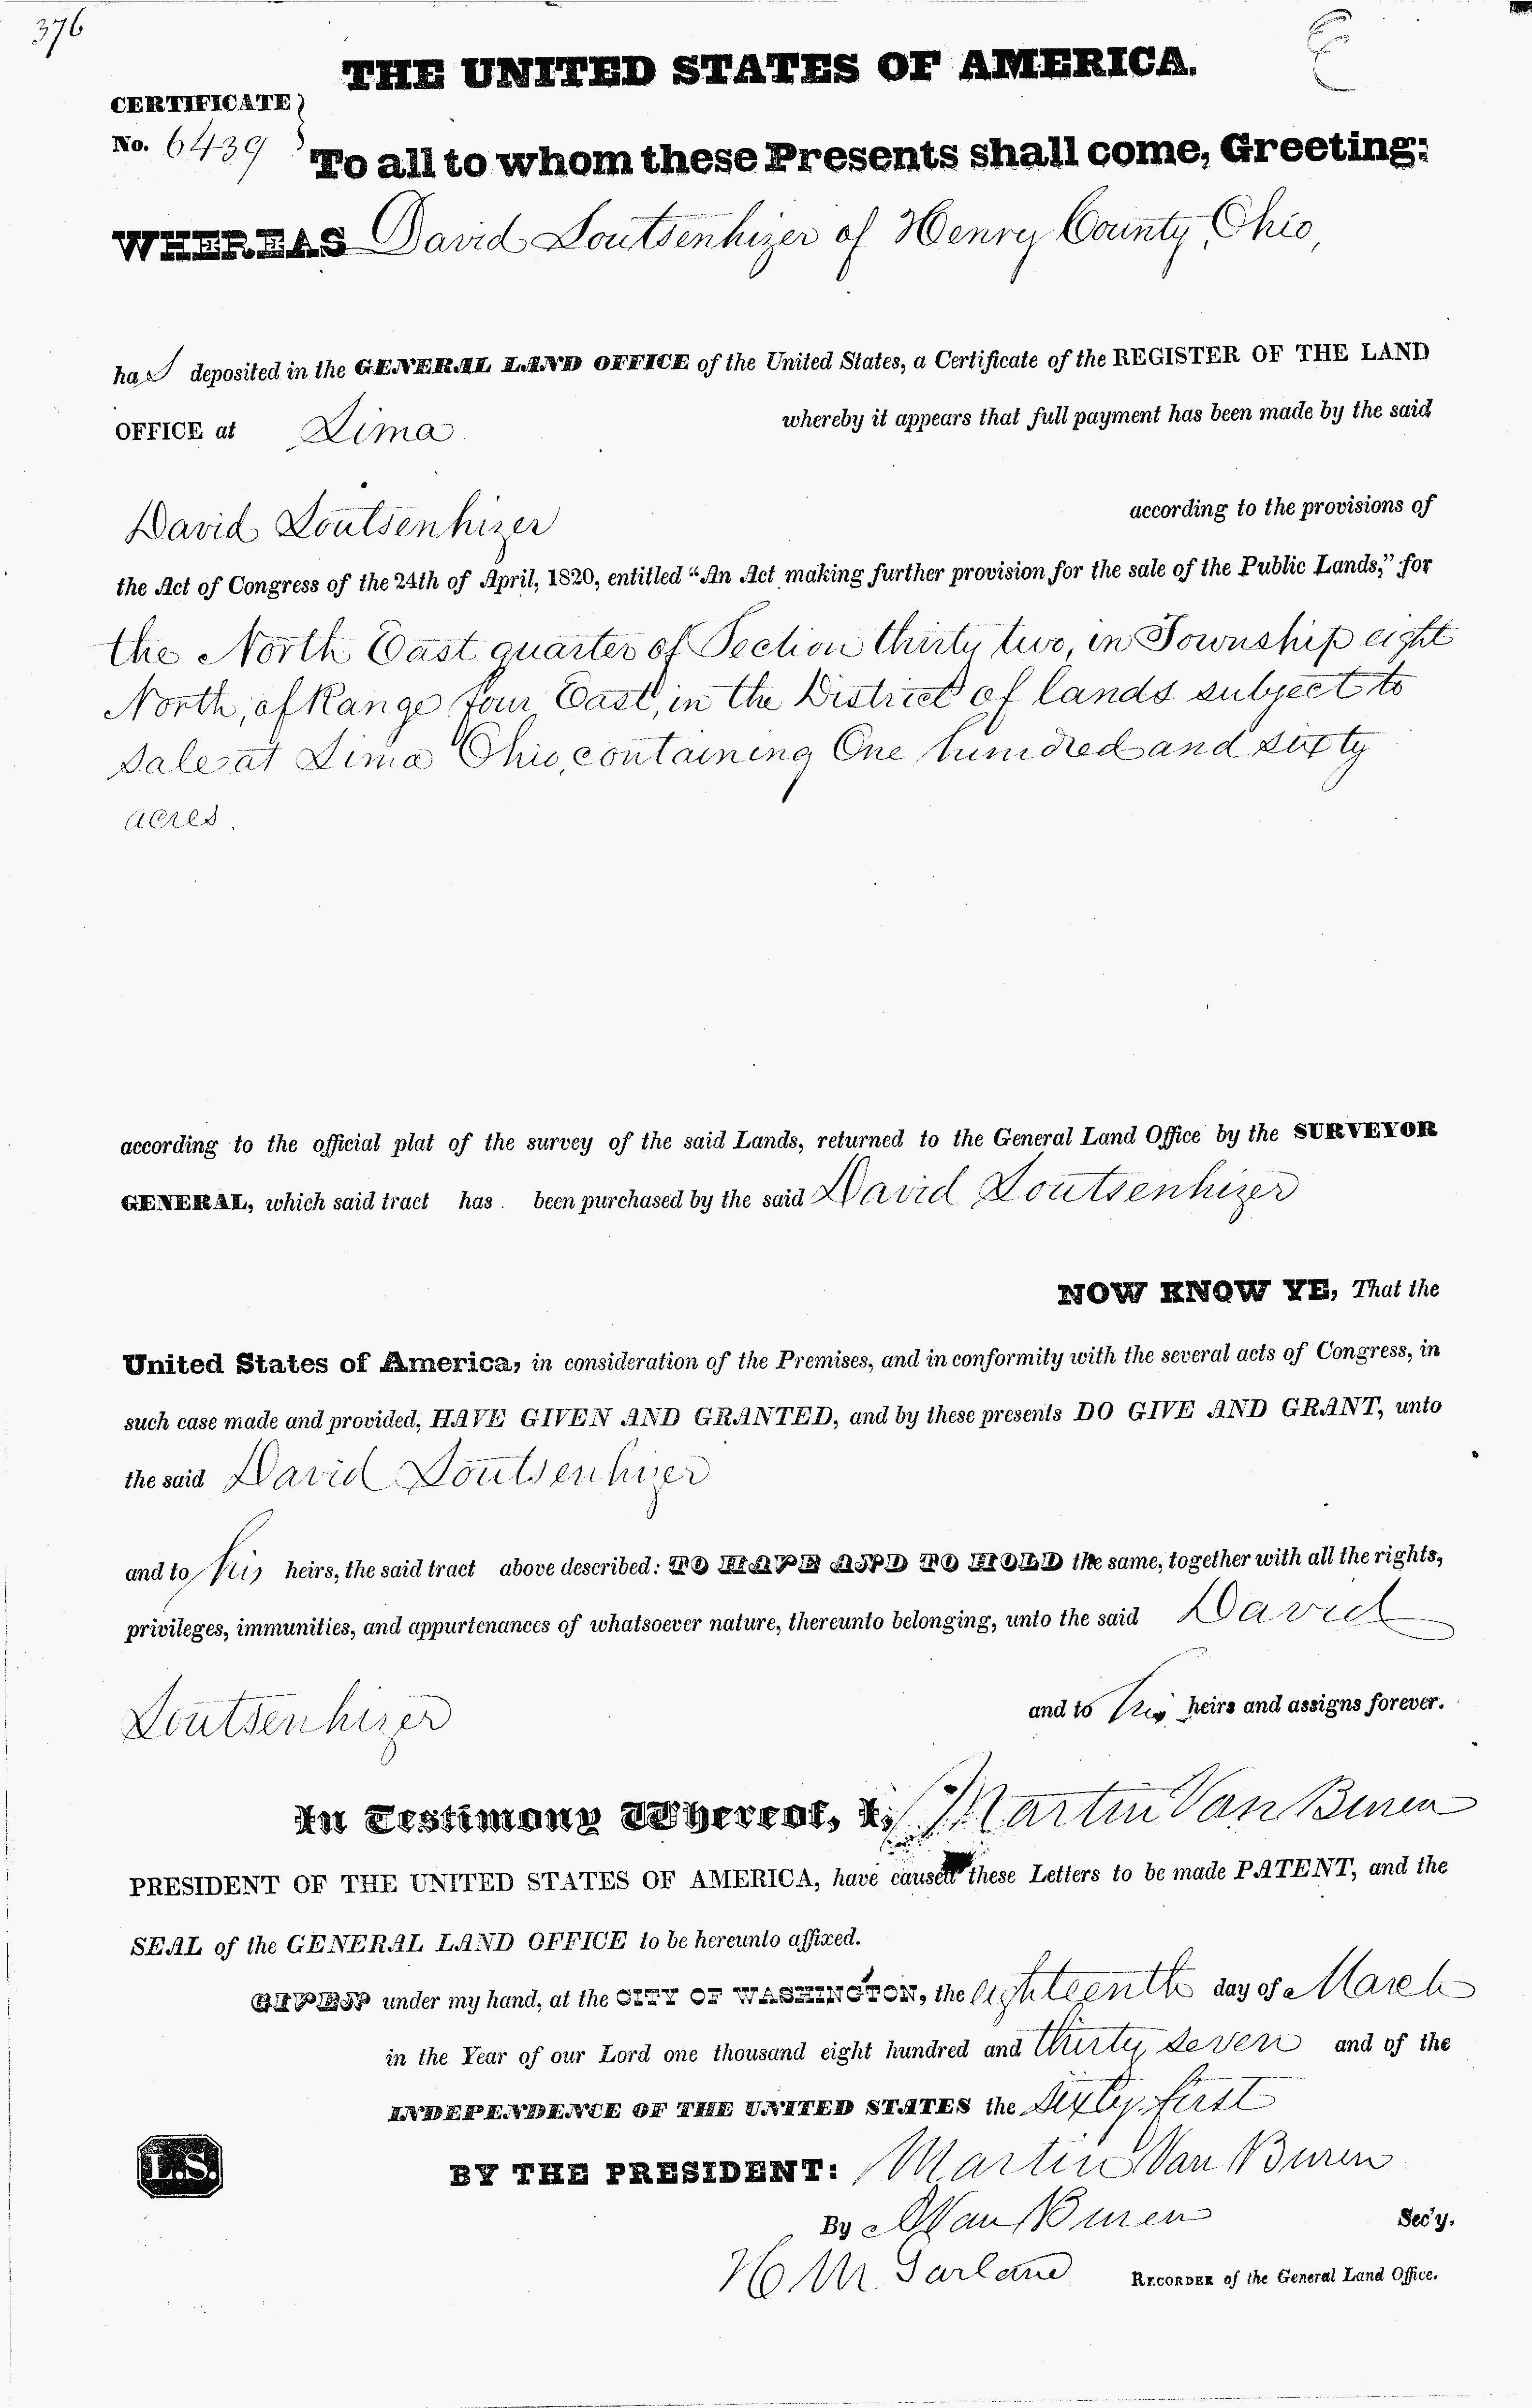 376
THE UNITED STATES OF AMERICA.
CERTIFICATE
No. 6439
To all to whom these Presents shall come, Greeting:
WHEREAS David Loutsenhizer of Henry County, Ohio,
has deposited in the GENERAL LAND OFFICE of the United States, a Certificate of the REGISTER OF THE LAND
OFFICE at Lima whereby it appears that full payment has been made by the said
David Loutsenhizer according to the provisions of
the Act of Congress of the 24th of April, 1820, entitled "An Act making further provision for the sale of the Public Lands," for
the North East quarter of Section thirty two, in Township eight
North, of Range four East, in the District of lands subject to
sale at Lima Ohio, containing One hundred and sixty
acres.
according to the official plat of the survey of the said Lands, returned to the General Land Office by the SURVEYOR
GENERAL, which said tract has been purchased by the said David Loutsenhizer
NOW KNOW YE, That the
United States of America, in consideration of the Premises, and in conformity with the several acts of Congress, in
such case made and provided, HAVE GIVEN AND GRANTED, and by these presents DO GIVE AND GRANT, unto
the said David Loutsenhizer
and to his heirs, the said tract above described: TO HAVE AND TO HOLD the same, together with all the rights,
privileges, immunities, and appurtenances of whatsoever nature, thereunto belonging, unto the said David
Loutsenhizer and to his heirs and assigns forever.
In Testimony Whereof, I, Martin Van Buren
PRESIDENT OF THE UNITED STATES OF AMERICA, have caused these Letters to be made PATENT, and the
SEAL of the GENERAL LAND OFFICE to be hereunto affixed.
GIVEN under my hand, at the CITY OF WASHINGTON, the eighteenth day of March
in the Year of our Lord one thousand eight hundred and thirty seven and of the
INDEPENDENCE OF THE UNITED STATES the sixty first
L.S.
BY THE PRESIDENT: Martin Van Buren
By A Van Buren Sec'y.
H M Garland RECORDER of the General Land Office.